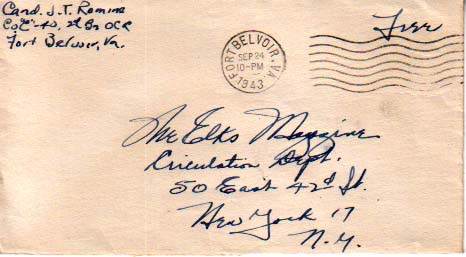 Cand. J. T. Romine
Co "C"-40, 2d Bn OCR
Fort Belvoir, Va.
Free
FORT BELVOIR, VA
SEP 24
10-PM
1943
The Elks Magazine
Circulation Dept.
50 East 42d St.
New York 17
N.Y.